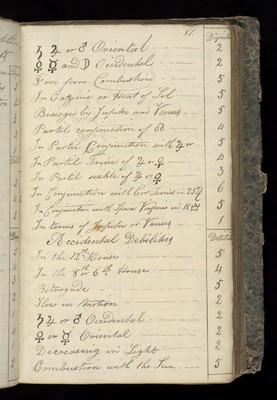 81.
Dignities
♄ ♃ or ♂ Oriental 2
♀ ☿ and ☽ Occidental 2
Free from Combustion 5
In Cazimi or Heart of Sol 5
Besieged by Jupiter and Venus 5
Partil conjunction of ☊ 4
In Partil Conjunction with ♃ or 5
In Partil Trine of ♃ or ♀ 4
In Partil sextile of ♃ or ♀ 3
In Conjunction with Cor Leonis in 25 ♌ 6
In Conjunction with Spica Virginis in 18 5
In terms of Jupiter or Venus 1
Accidental Debilities
In the 12th House 5
In the 8th or 6th House 4
Retrograde 5
Slow in Motion 2
♄ ♃ or ♂ Occidental 2
♀ or ☿ Oriental 2
Decreasing in Light 2
Combustion with the Sun 5